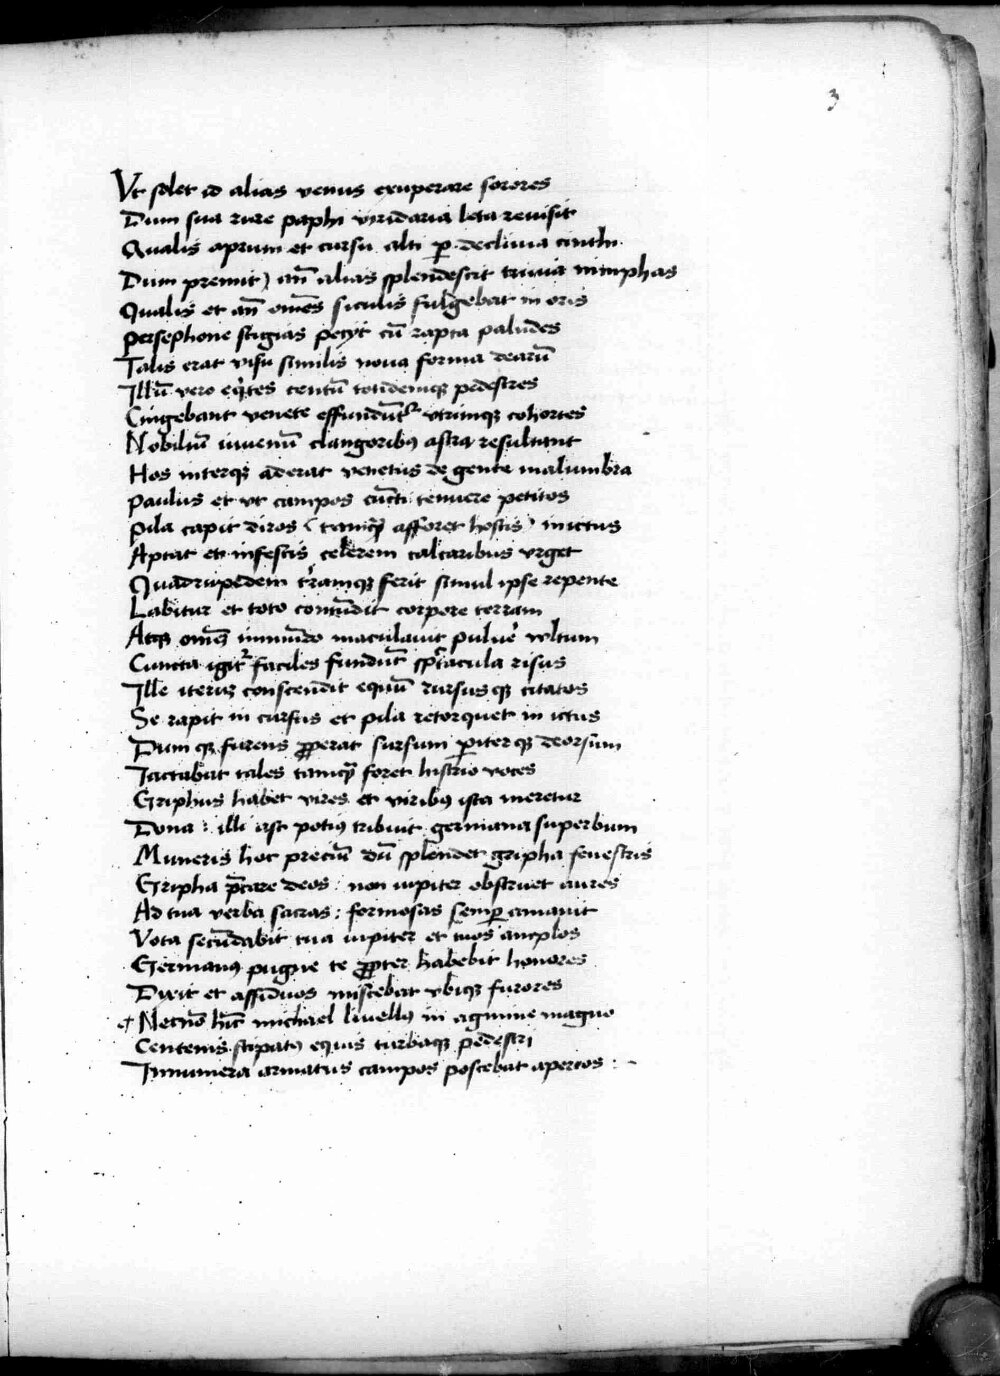 3
Vt solet id alias venus exuperare sorores
Dum sua rure paphi viridaria leta reuisit
Qualis aprum et cursu alti ꝑ decliuia cinthi
Dum premit) an̄ alias splendescit triuia nimphas
Qualis et an̄ om̄es siculis fulgebat in oris
Persephone stigias petijt cū rapta paludes
Talis erat visu similis noua forma dearū
Illū vero eq̇tes centū totidemqꝫ pedestres
Cingebant venete effundūt᷑ vtrimqꝫ cohortes
Nobiliū iuuenū clangoribꝰ astra resultant
Hos interqꝫ aderat venetus de gente malumbra
Paulus et vt campos cūcti tenuere petitos
Pila capit diros (tamqꝫ̄ afforet hostis) in ictus
Aptat et infestis celerem calcaribus vrget
Quadrupedem t̄ramqꝫ ferit simul ipse repente
Labitur et toto contūdit corpore terram
Atqꝫ om̄ē inmūdo maculauit puluē vultum
Cuncta igit᷑ faciles fundūt sp̄tacula risus
Ille iterū conscendit equū rursusqꝫ citatos
Se rapit in cursus et pila retorquet in ictus
Dumqꝫ furens ꝓperat sursum ꝑiterqꝫ deorsum
Jactabat tales tamqꝫ̄ foret histrio voces
Griphus habet vires et viribꝰ ista meretur
Dona : illi ast potiꝰ tribuit germana superbum
Muneris hoc preciū dū splendet gripha fenestris
Gripha p̄care deos : non iupiter obstruet aures
Ad tua verba sacras : formosas semꝑ amauit
Vota secūdabit tua iupiter et tuos amplos
Germanꝰ pugne te ꝓpter habebit honores
Dixit et assiduos miscebat vbiqꝫ furores
+ Necnō hīc michael liuellꝰ in agmine magno
Centenis stipatꝰ equis turbaqꝫ pedestri
Innumera armatus campos poscebat apertos : -